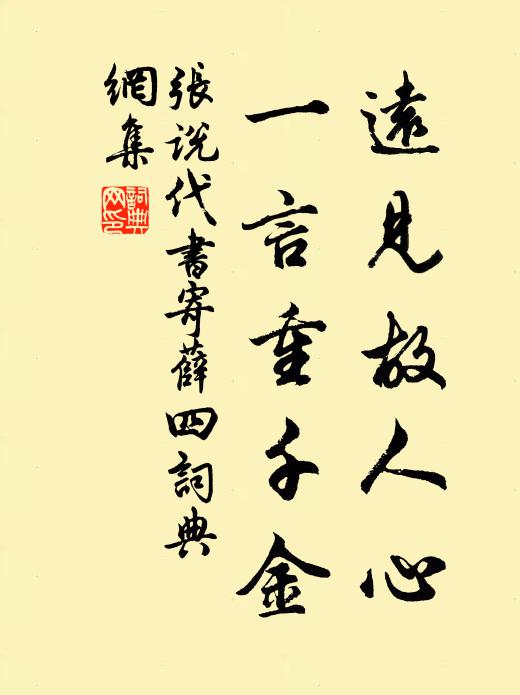 遠見故人心
一言重千金
張說代書寄薛四詞典
網集
詞典網印